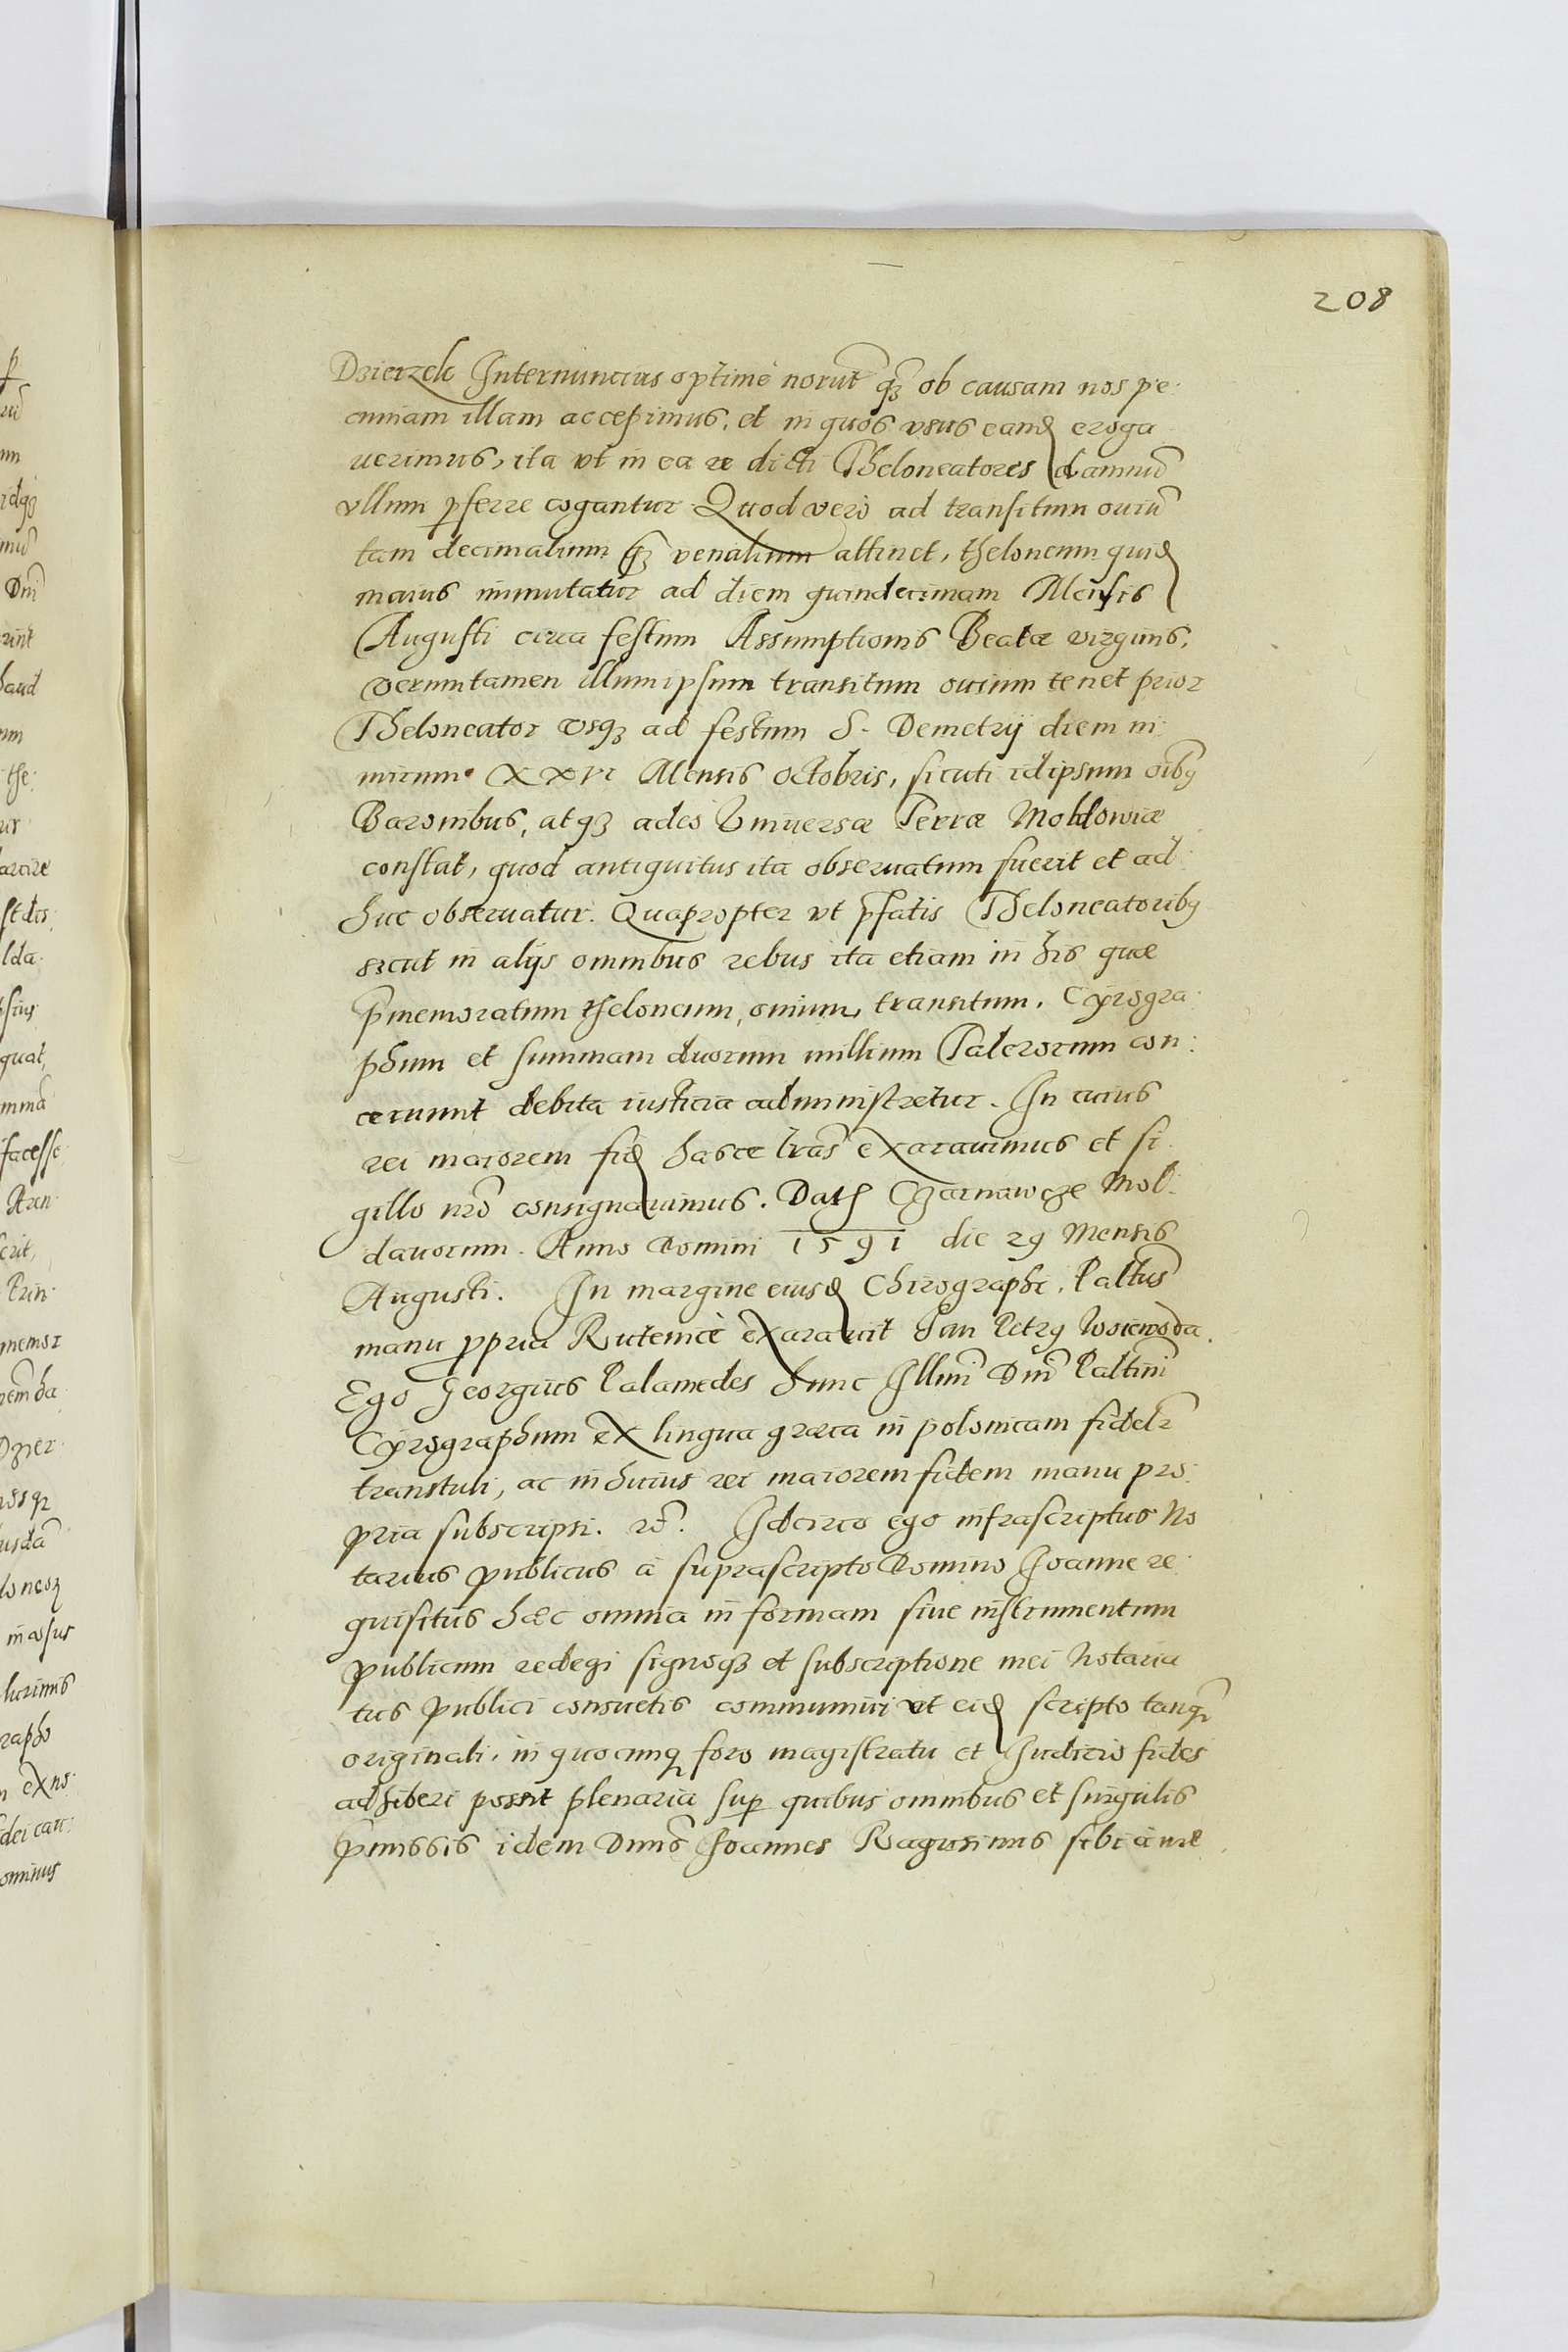 208
Dzierzek Internuncius optimè norūt qʒ̃ ob causam nos pe:
cuniam illam accepimus, et in quos vsus eandẽ eroga
uerimus, ita vt in ea re dicti Theloneatores damnũ
vllum ꝑferre cogantur Quod verò ad transitum ouiũ
tam decimalium qʒ̃ venalium attinet, theloneum quidẽ
maius immutatur ad diem quindecimam Mensis
Augusti circa festum Assumptionis Beatæ virginis,
veruntamen illum ipsum transitum ouium tenet prior
Theloneator vsqʒ ad festum S. Demetrij diem ni:
mirum XXVI Mensis Octobris, sicuti id ipsum oĩbꝰ
Baronibus, atqʒ adeo Vniuersæ Terræ Moldowiæ
constat, quod antiquitus ita obseruatum fuerit et ad:
huc obseruatur. Quapropter vt p̃fatis Theloneatoribꝰ
sicut in alijs omnibus rebus ita etiam in his quæ
p̃memoratum theloneum, ouium, transitum, Cyrogra:
phum et summam duorum millium Talerorum con:
cernunt debita iusticia administretur. In cuius
rei maiorem fidẽ hasce lr̃as exarauimus et si
gillo nr̃o consignauimus. Datꝭ Czarnawcze Mol:
dauorum. Anno Domini 1591 die 29 Mensis
Augusti. In margine eiusdẽ Chirographi, Paltus̃
manu ꝓpria Rutenicè exarauit Jan Petrꝰ Woiewoda.
Ego Georgius Palamedes hunc Illm̃i Dnĩ Paltini
Cyrographum ex lingua græca in polonicam fidelr̃
transtuli, ac in huius rei maiorem fidem manu pro:
pria subscripsi. m̃. Idcirco ego infrascriptus No
tarius publicus à suprascripto Domino Joanne re:
quisitus hæc omnia in formam siue instrumentum
publicum redegi signoqʒ et subscriptione mei Notaria
tus publici consuetis communiui vt eidẽ scripto tanqr̃
originali, in quocunqꝫ foro magistratu et Judicio fides
adhiberi possit plenaria suꝑ quibus omnibus et singulis
p̃missis idem Dnus̃ Joannes Ragusinus sibi à me